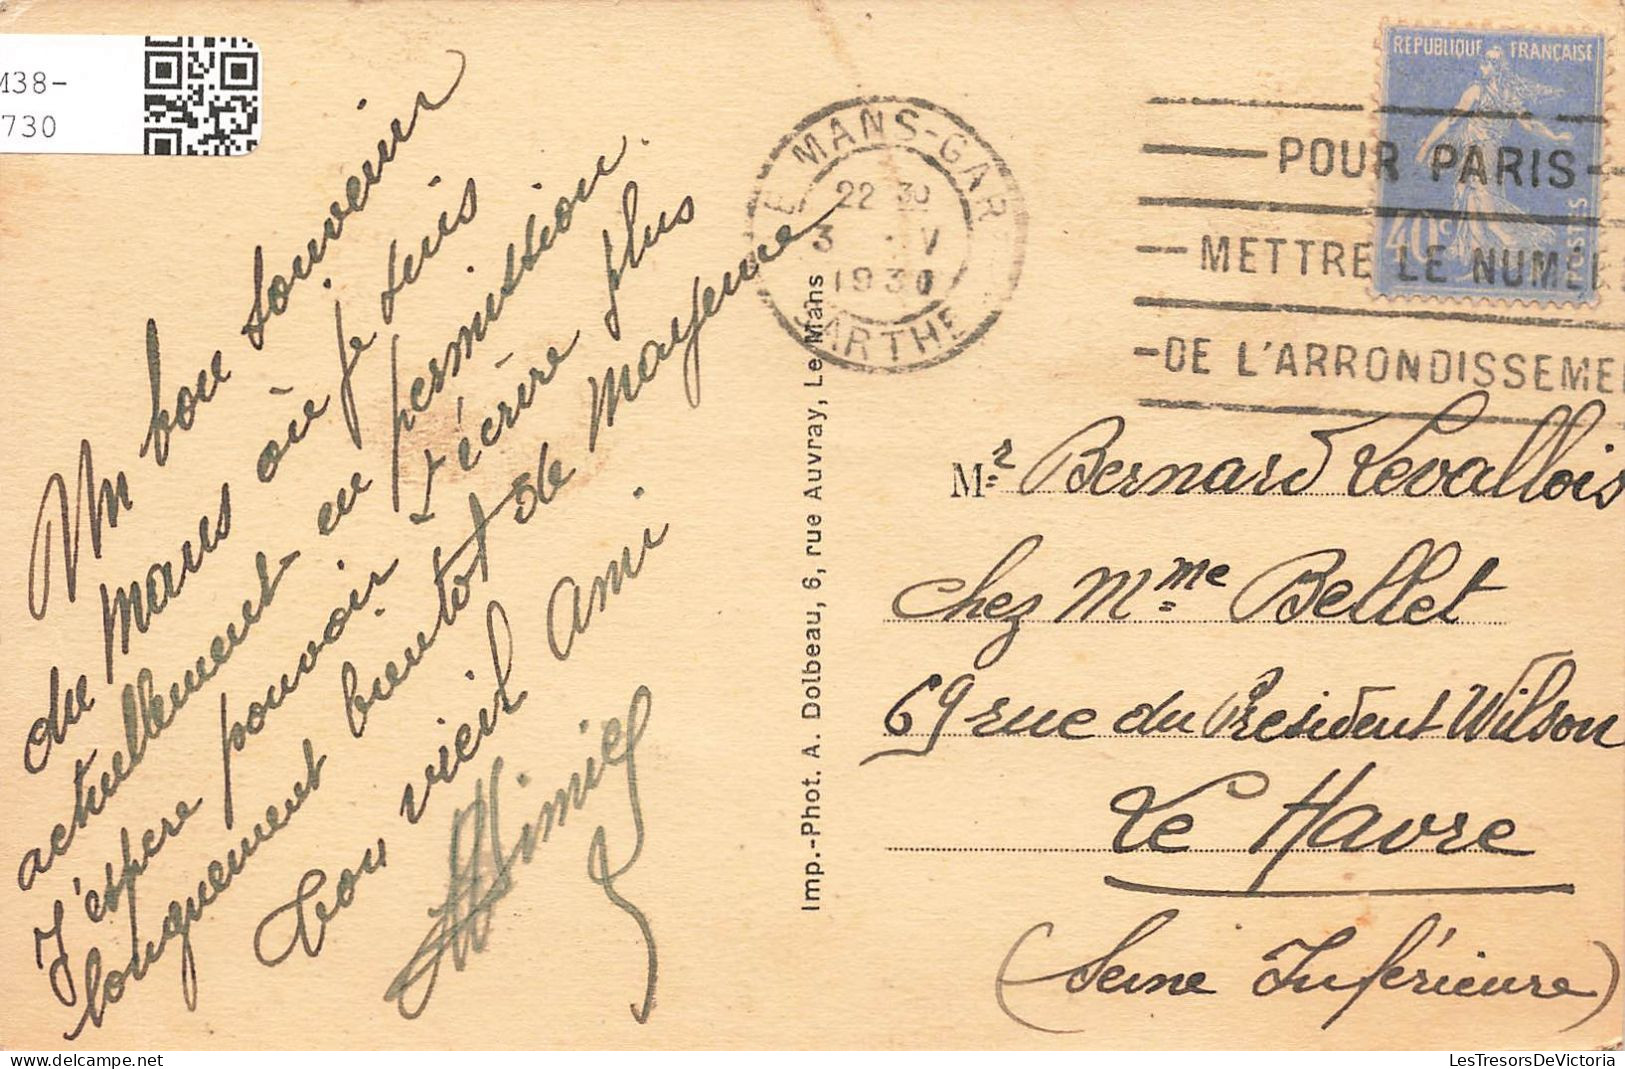 M38-
730
Un bon souvenir
du Mans où je suis
actuellement en permission.
J'espère pouvoir t'écrire plus
longuement bientot de Mayenne
Ton vieil Ami
LE MANS-GAR
22 30
3 V
1930
SARTHE
REPUBLIQUE FRANÇAISE
40c
POSTES
POUR PARIS
METTRE LE NUMÉR
DE L'ARRONDISSEME
Imp.-Phot. A. Dolbeau, 6, rue Auvray, Le Mans
Mr Bernard Levallois
chez Mme Bellet
69 rue du President Wilson
Le Havre
(Seine Inférieure)
LesTresorsDeVictoria